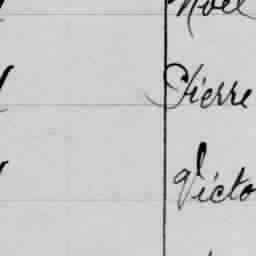 Noël
Pierre
Victo